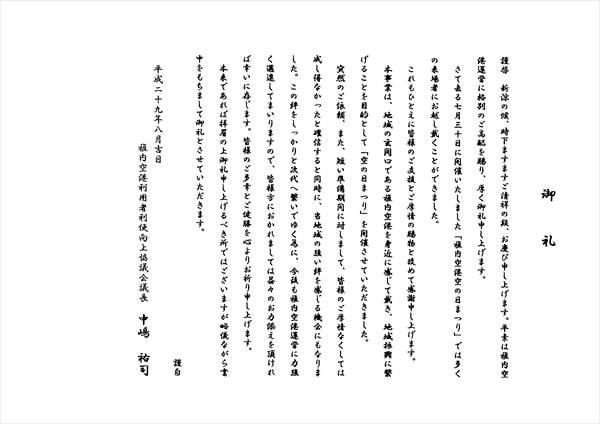 御礼
謹啓　新涼の候、時下ますますご清祥の段、お慶び申し上げます。平素は稚内空
港運営に格別のご高配を賜り、厚く御礼申し上げます。
さて去る七月三十日に開催いたしました「稚内空港空の日まつり」では多く
の来場者にお越し戴くことができました。
これもひとえに皆様のご支援とご厚情の賜物と改めて感謝申し上げます。
本事業は、地域の玄関口である稚内空港を身近に感じて戴き、地域振興に繋
げることを目的として「空の日まつり」を開催させていただきました。
突然のご依頼、また、短い準備期間に対しまして、皆様のご厚情なくしては
成し得なかったと確信すると同時に、当地域の強い絆を感じる機会にもなりま
した。この絆をしっかりと次代へ繋いでゆく為に、今後も稚内空港運営に力強
く邁進してまいりますので、皆様方におかれましては益々のお力添えを頂けれ
ば幸いに存じます。皆様のご多幸とご健勝を心よりお祈り申し上げます。
本来であれば拝眉の上御礼申し上げるべき所ではございますが略儀ながら書
中をもちまして御礼とさせていただきます。
謹白
平成二十九年八月吉日
稚内空港利用者利便向上協議会議長　中嶋　裕司